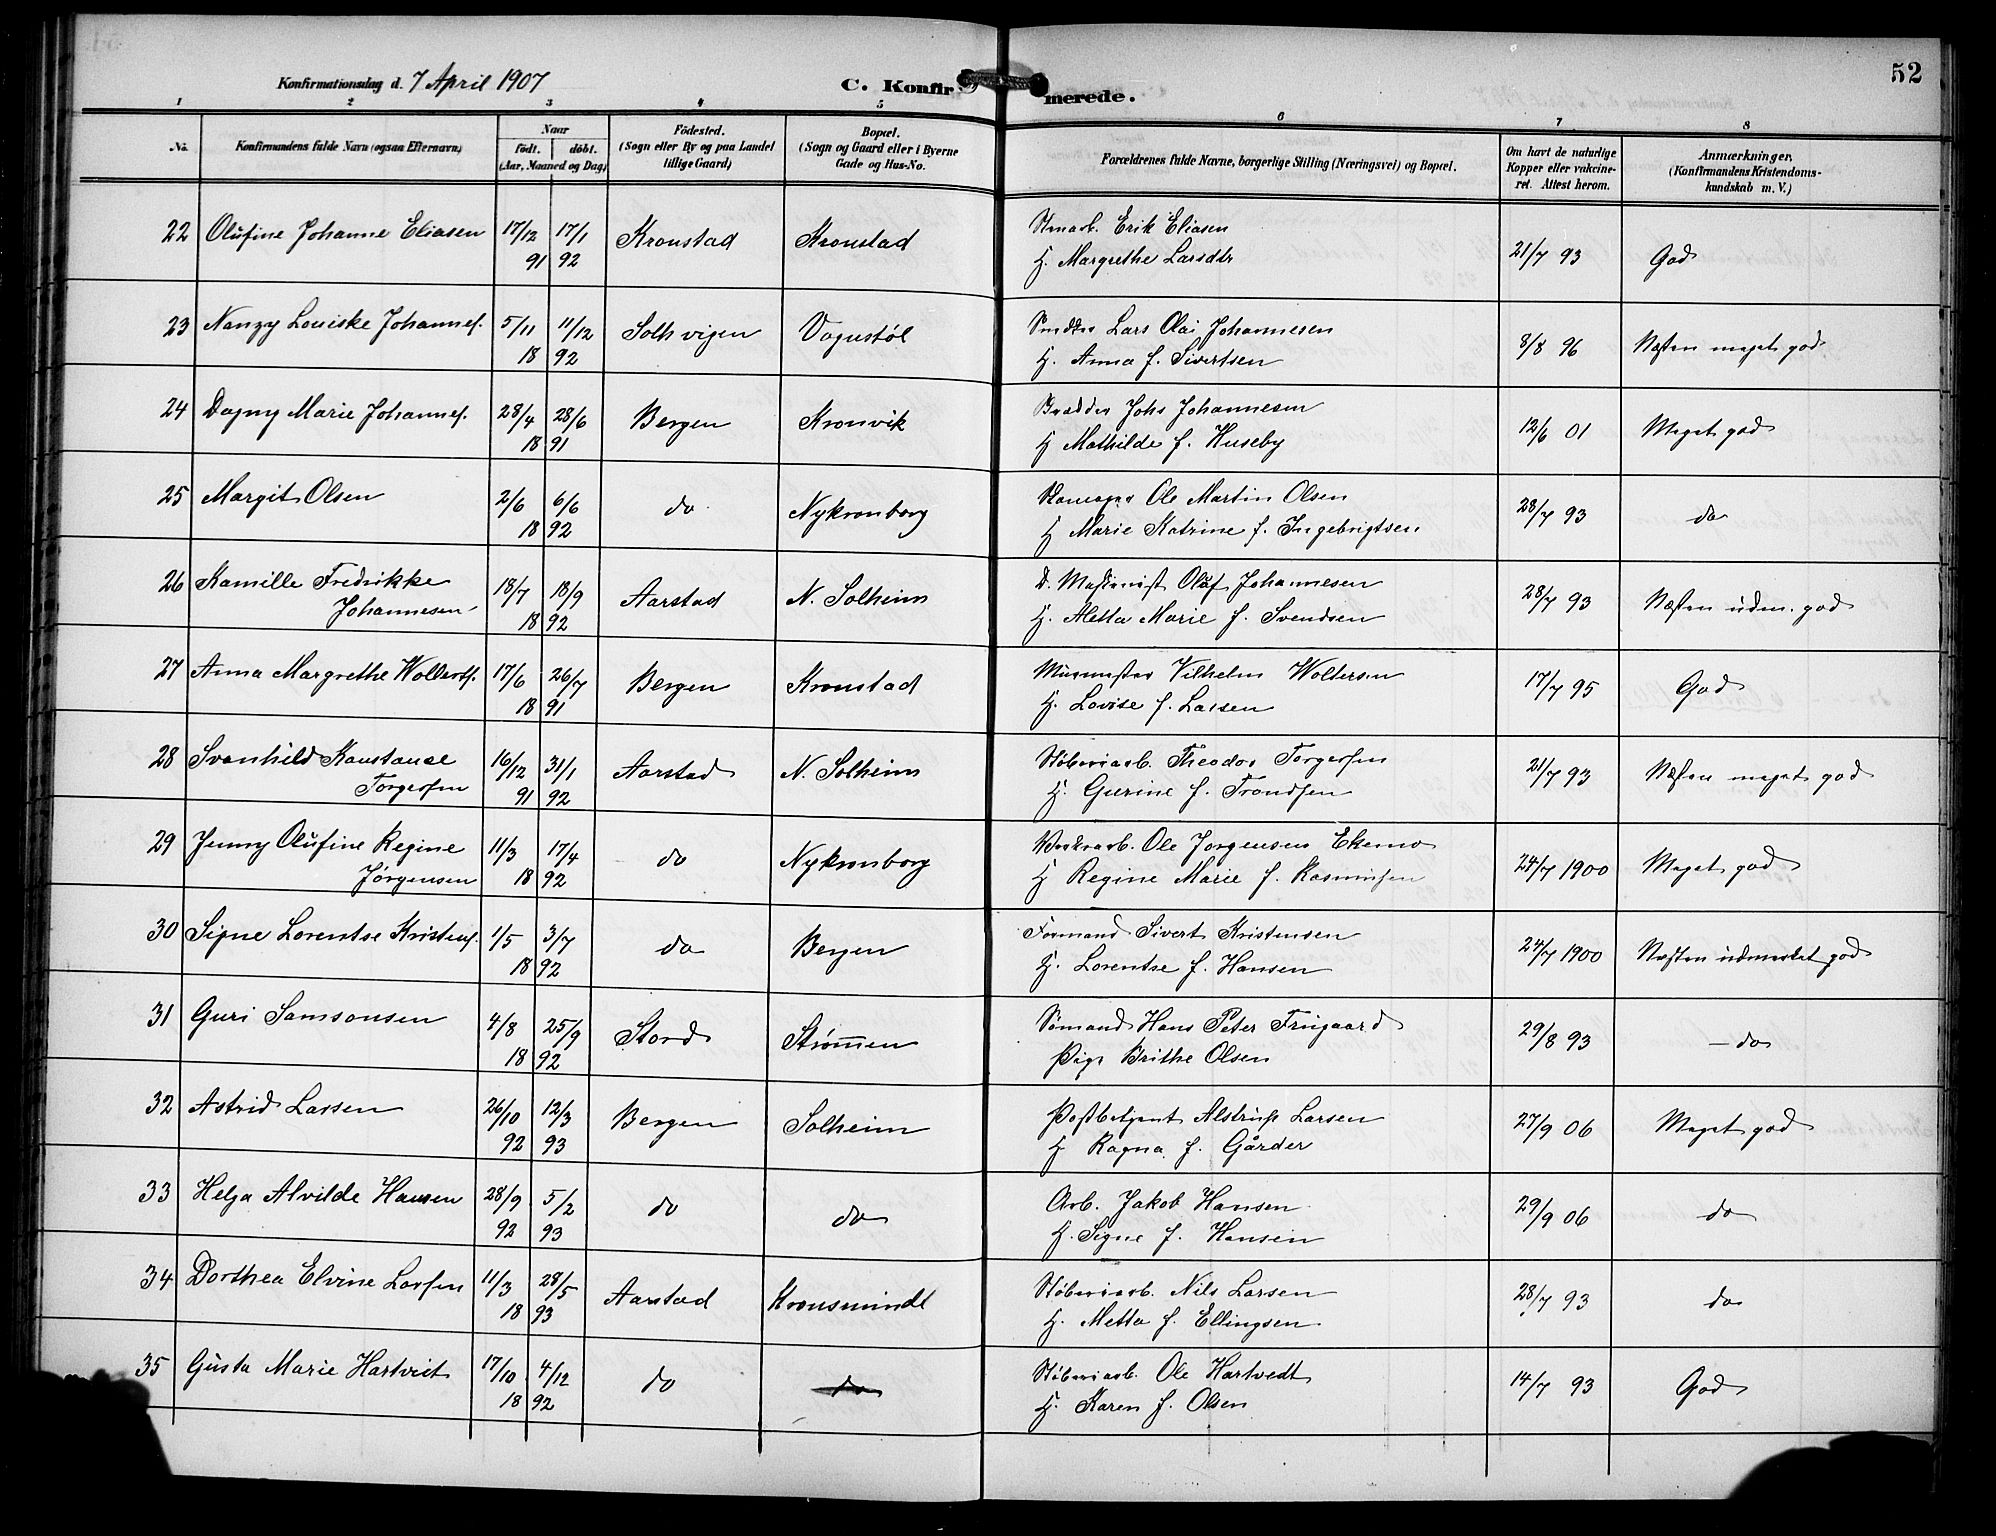 52
Konfirmationsdag d. 7 April 1907
C. Konfirmerede.
1 2 3 4 5 6 7 8
No. Konfirmandens fulde Navn (ogsaa Efternavn) Naar födt. döbt. (Aar, Maaned og Dag) Födested. (Sogn eller By og paa Landet tillige Gaard) Bopæl. (Sogn og Gaard eller i Byerne Gade og Hus-No. Forældrenes fulde Navne, borgerlige Stilling (Næringsvei) og Bopæl. Om havt de naturlige Kopper eller vakcineret. Attest herom. Anmærkninger, (Konfirmandens Kristendomskundskab m. V.)
22 Olufine Johanne Eliasen 17/12 91 17/1 92 Kronstad Kronstad Erik Eliasen 21/7 93 God
H. Margrethe Larsdtr
23 Nanzy Louiske Johannes. 5/11 18 11/12 92 Solhvigen Vognstøl Lars Olai Johannesen 8/8 96 Næsten meget god
H. Anna f. Sivertsen
24 Dagny Marie Johannes. 28/4 18 28/6 91 Bergen Kronvik Johs Johannesen 12/6 01 Meget god
H Mathilde f. Huseby
25 Margit Olsen 2/6 18 6/6 92 do Nykronborg Ole Martin Olsen 28/7 93 do
H Marie Katrine f. Ingebrigtsen
26 Kamille Fredrikke 18/7 18 18/9 92 Aarstad N. Solheim D. Maskinist Olaf Johannesen 28/7 93 Næsten udm. god
Johannesen H. Aletta Marie f. Svendsen
27 Anna Margrethe Wolters. 17/6 18 26/7 91 Bergen Kronstad Murmester Vilhelm Woltersen 17/7 95 God
H. Lovise f. Larsen
28 Svanhild Konstanse 16/12 91 31/1 92 Aarstad N. Solheim Støberiarb. Theodor Torgersen 21/7 93 Næsten meget god
Torgersen H. Gurine f. Trondsen
29 Jenny Olufine Regine 11/3 18 17/4 92 do Nykronborg Værksarb. Ole Jørgensen Ekemo 24/7 1900 Meget god
Jörgensen H Regine Marie f. Rasmusen
30 Signe Lorentse Kristens. 1/5 18 3/7 92 do Bergen Formand Sivert Kristensen 24/7 1900 Næsten udmerket god
H. Lorentse f. Hansen
31 Guri Samsonsen 4/8 18 25/9 92 Stord Strømmen Sømand Hans Peter Frugaard 29/8 93 - do
Pige Brithe Olsen
32 Astrid Larsen 26/10 92 12/3 93 Bergen Solheim Postbetjent Alstrup Larsen 27/9 06 Meget god
H Ragna f. Gårder
33 Helga Alvilde Hansen 28/9 92 5/2 93 do do Arb. Jakob Hansen 29/9 06 do
H. Signe f. Hansen
34 Dorthea Elvine Larsen 11/3 18 28/5 93 Aarstad Kronsminde Støberiarb. Nils Larsen 28/7 93 do
H. Metta f. Ellingsen
35 Gusta Marie Hartveit 17/10 18 4/12 92 do do Støberiarb. Ole Hartvedt 14/7 93 God
H. Karen f. Olsen